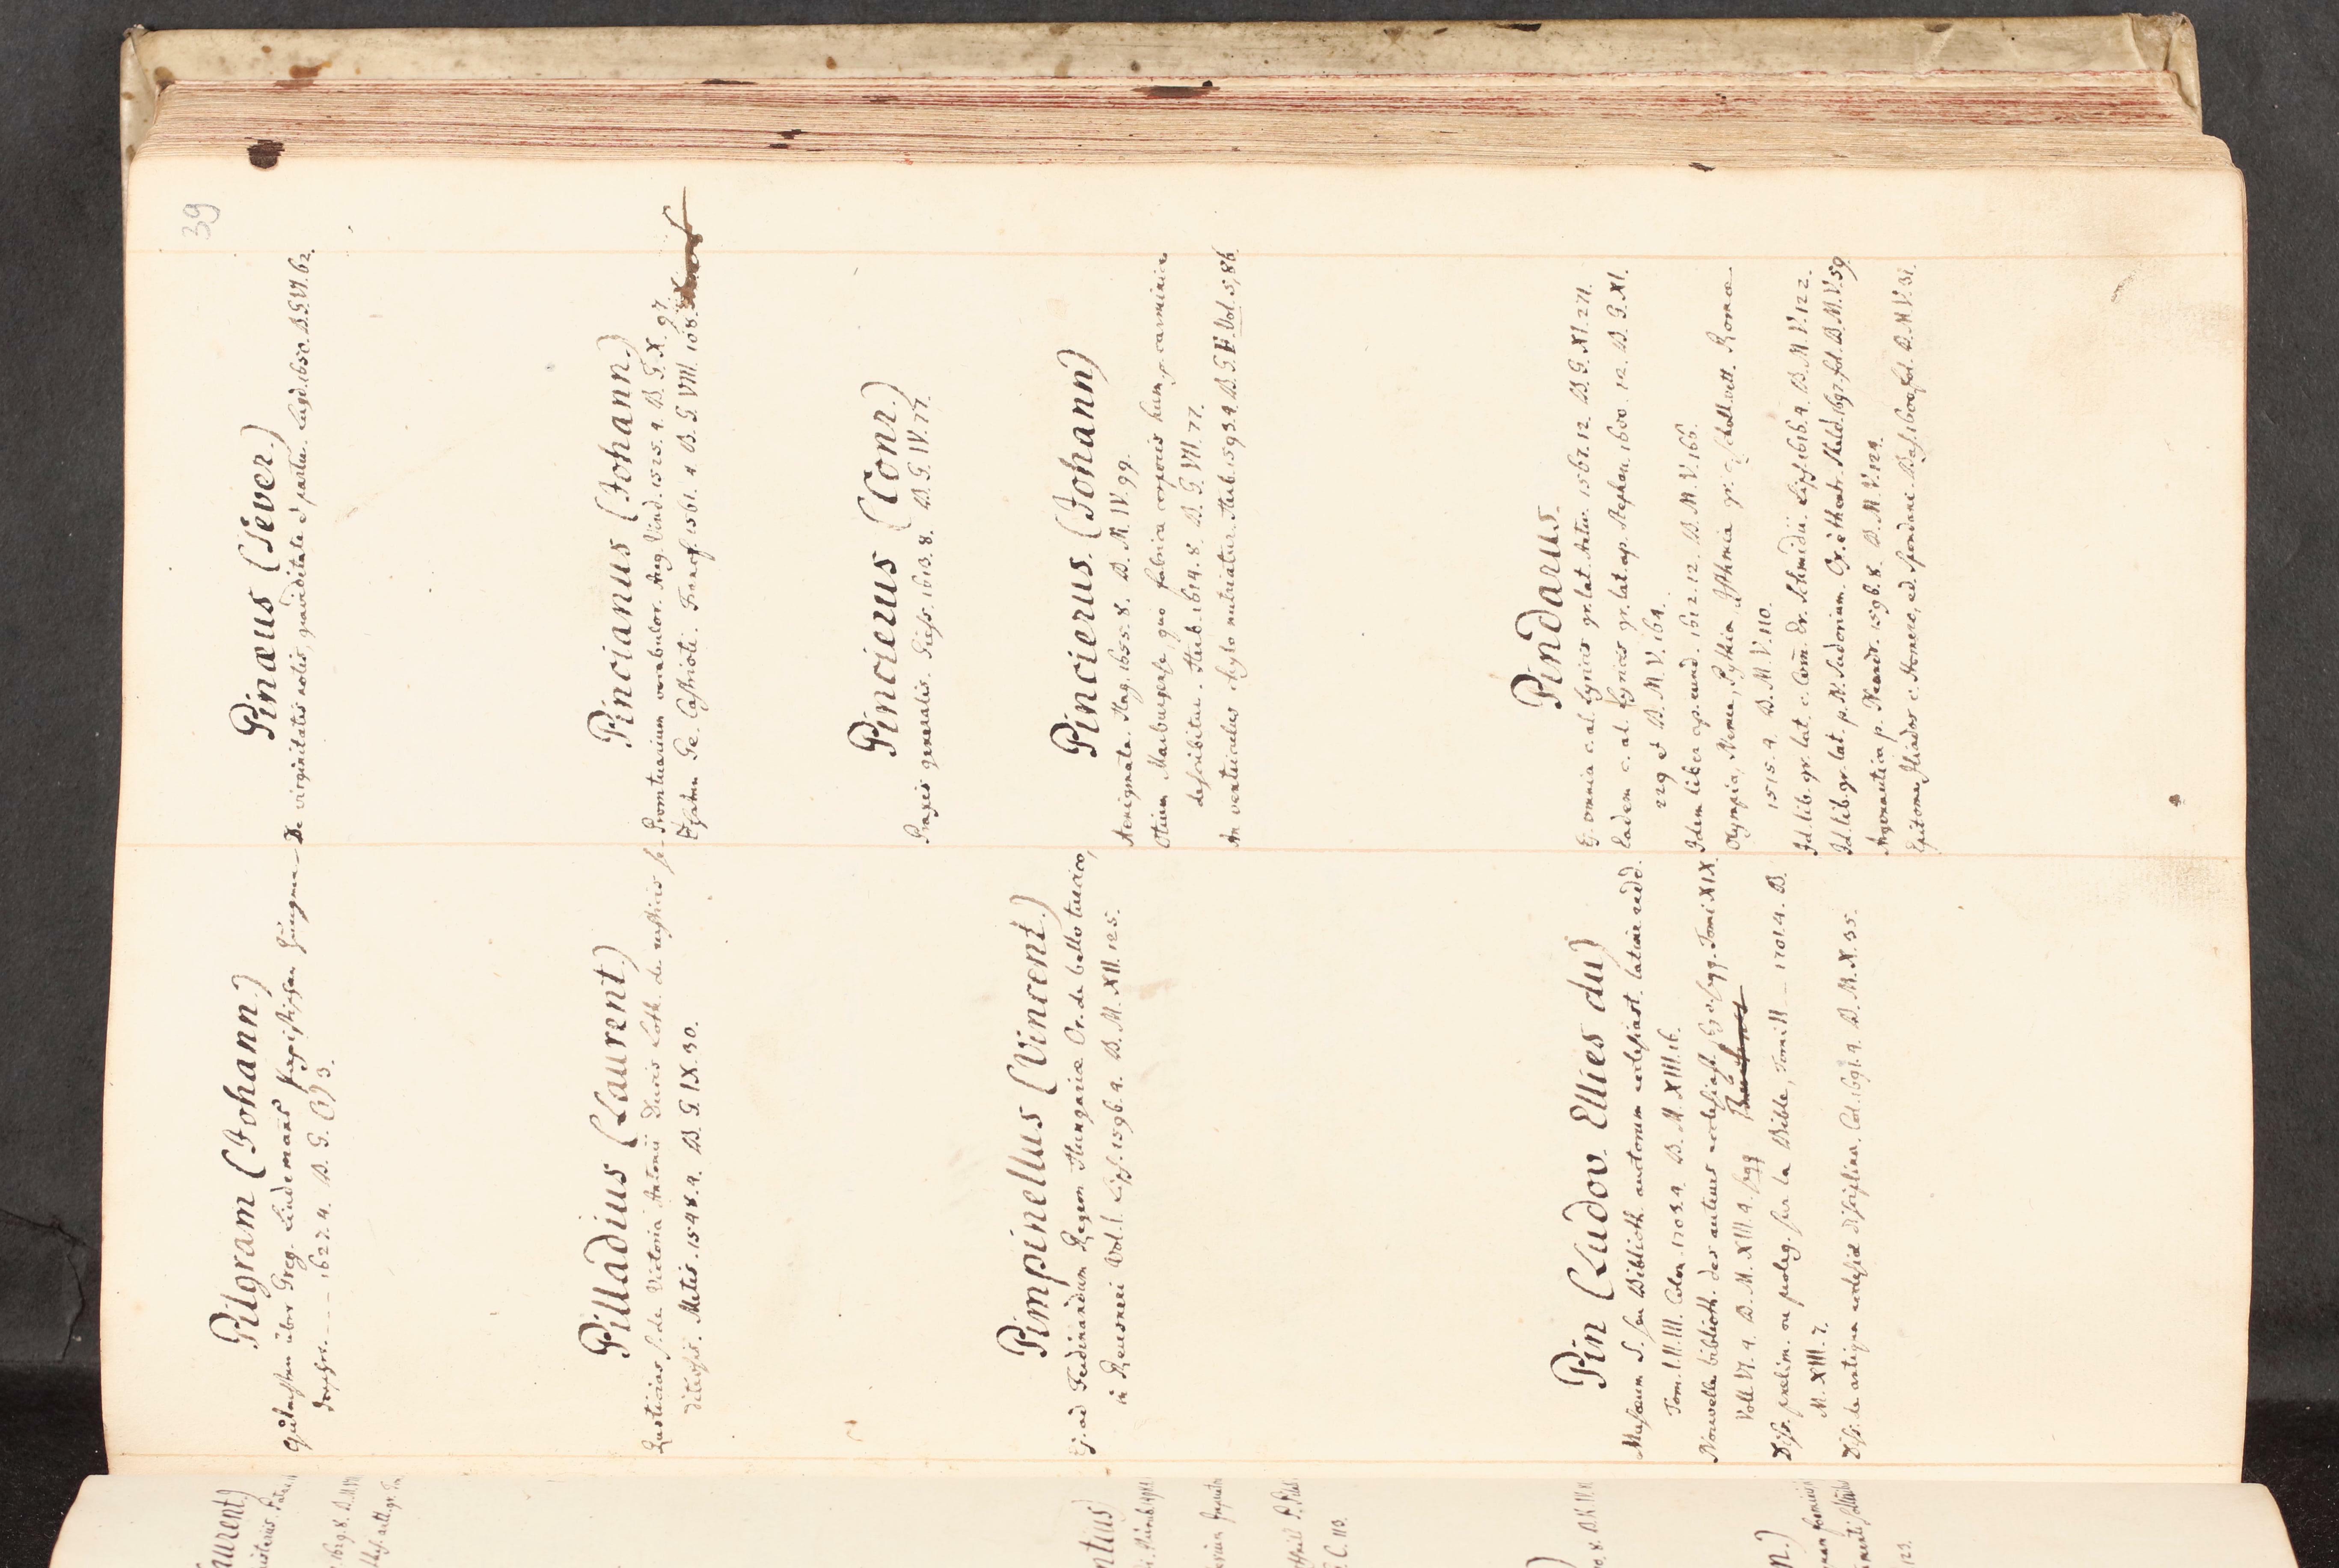 39
Pilgram (Johann)
über Greg. Lindemans
1627. 4. B. G.
Pilladius (Laurent)
Rusticias s. de Victoria Antonii Ducis Loth. de rusticis se-
ditiosis. Metis. 1548. 4. B. G. IX. 30.
Pimpinellus (Vincent.)
Ej. ad Ferdinandum Regem Hungariæ Or. de bello turcico,
in Reusneri Vol. I. Lips. 1596. 4. B. M. XII. 125.
Pin (Ludov. Ellies du)
Musæum S. seu Biblioth. auctorum ecclesiast. latine redd.
Tom. I. II. III. Colon. 1703. 4. B. M. XIII. 16.
Nouvelle biblioth. des auteurs ecclesiast. Tomi XIX
Voll. VI. 4. B. M. XIII. 9. sqq
Diss. prelim. ou proleg. sur la Bible, Tomi II - 1701. 4. B.
M. XIII. 7.
Diss. de antiqua ecclesiæ disciplina. Col. 1691. 4. B. M. X. 35.
Pinæus (Sever.)
De virginitatis notis, graviditate & partu. Lugd. 1650. B. G. VI. 62.
Pincianus (Johann)
Promtuarium vocabulor. Aug. Vind. 1525. 4. B. G. X. 97.
Ge. Castrioti. Francf. 1561. 4 B. G. VIII. 108.
Pincierus (Conr.)
Praxis generalis. Giess. 1613. 8. B. G. IV. 77.
Pincierus (Johann)
Aenigmata. Hag. 1655. 8. B. M. IV. 99.
Otium Marburgense, quo fabrica corporis hum. carminice
describitur. Herb. 1614. 8. B. G. VII. 77.
An ventriculus chylo nutriatur. Herb. 1593. 4. B. G. Vol. 5, 86
Pindarus.
Ej. omnia c. al. Lyricis gr. lat. Antw. 1567. 12. B. G. XI. 271.
Eadem c. al. Lyricis gr. lat. ap. Stephan. 1600. 12. B. G. XI.
229 & B. M. V. 164.
Idem liber ap. eund. 1612. 12. B. M. V. 166.
Olympia, Nemea, Pythia, Isthmia gr. c. scholl. vett. Romæ
1515. 4. B. M. V. 110.
Id. lib. gr. lat. c. Com. Er. Schmidii. Lips. 1616. 4. B. M. V. 122.
Id. lib. gr. lat. p. N. Sudorium. Ox. è theatr. Sheld. 1697. fol. B. M. V. 59.
Argonautica p. Neandr. 1596. 8. B. M. V. 124.
Epitome Iliados c. Homero, ed. Spondani. Bas. 1606. fol. B. M. V. 31.